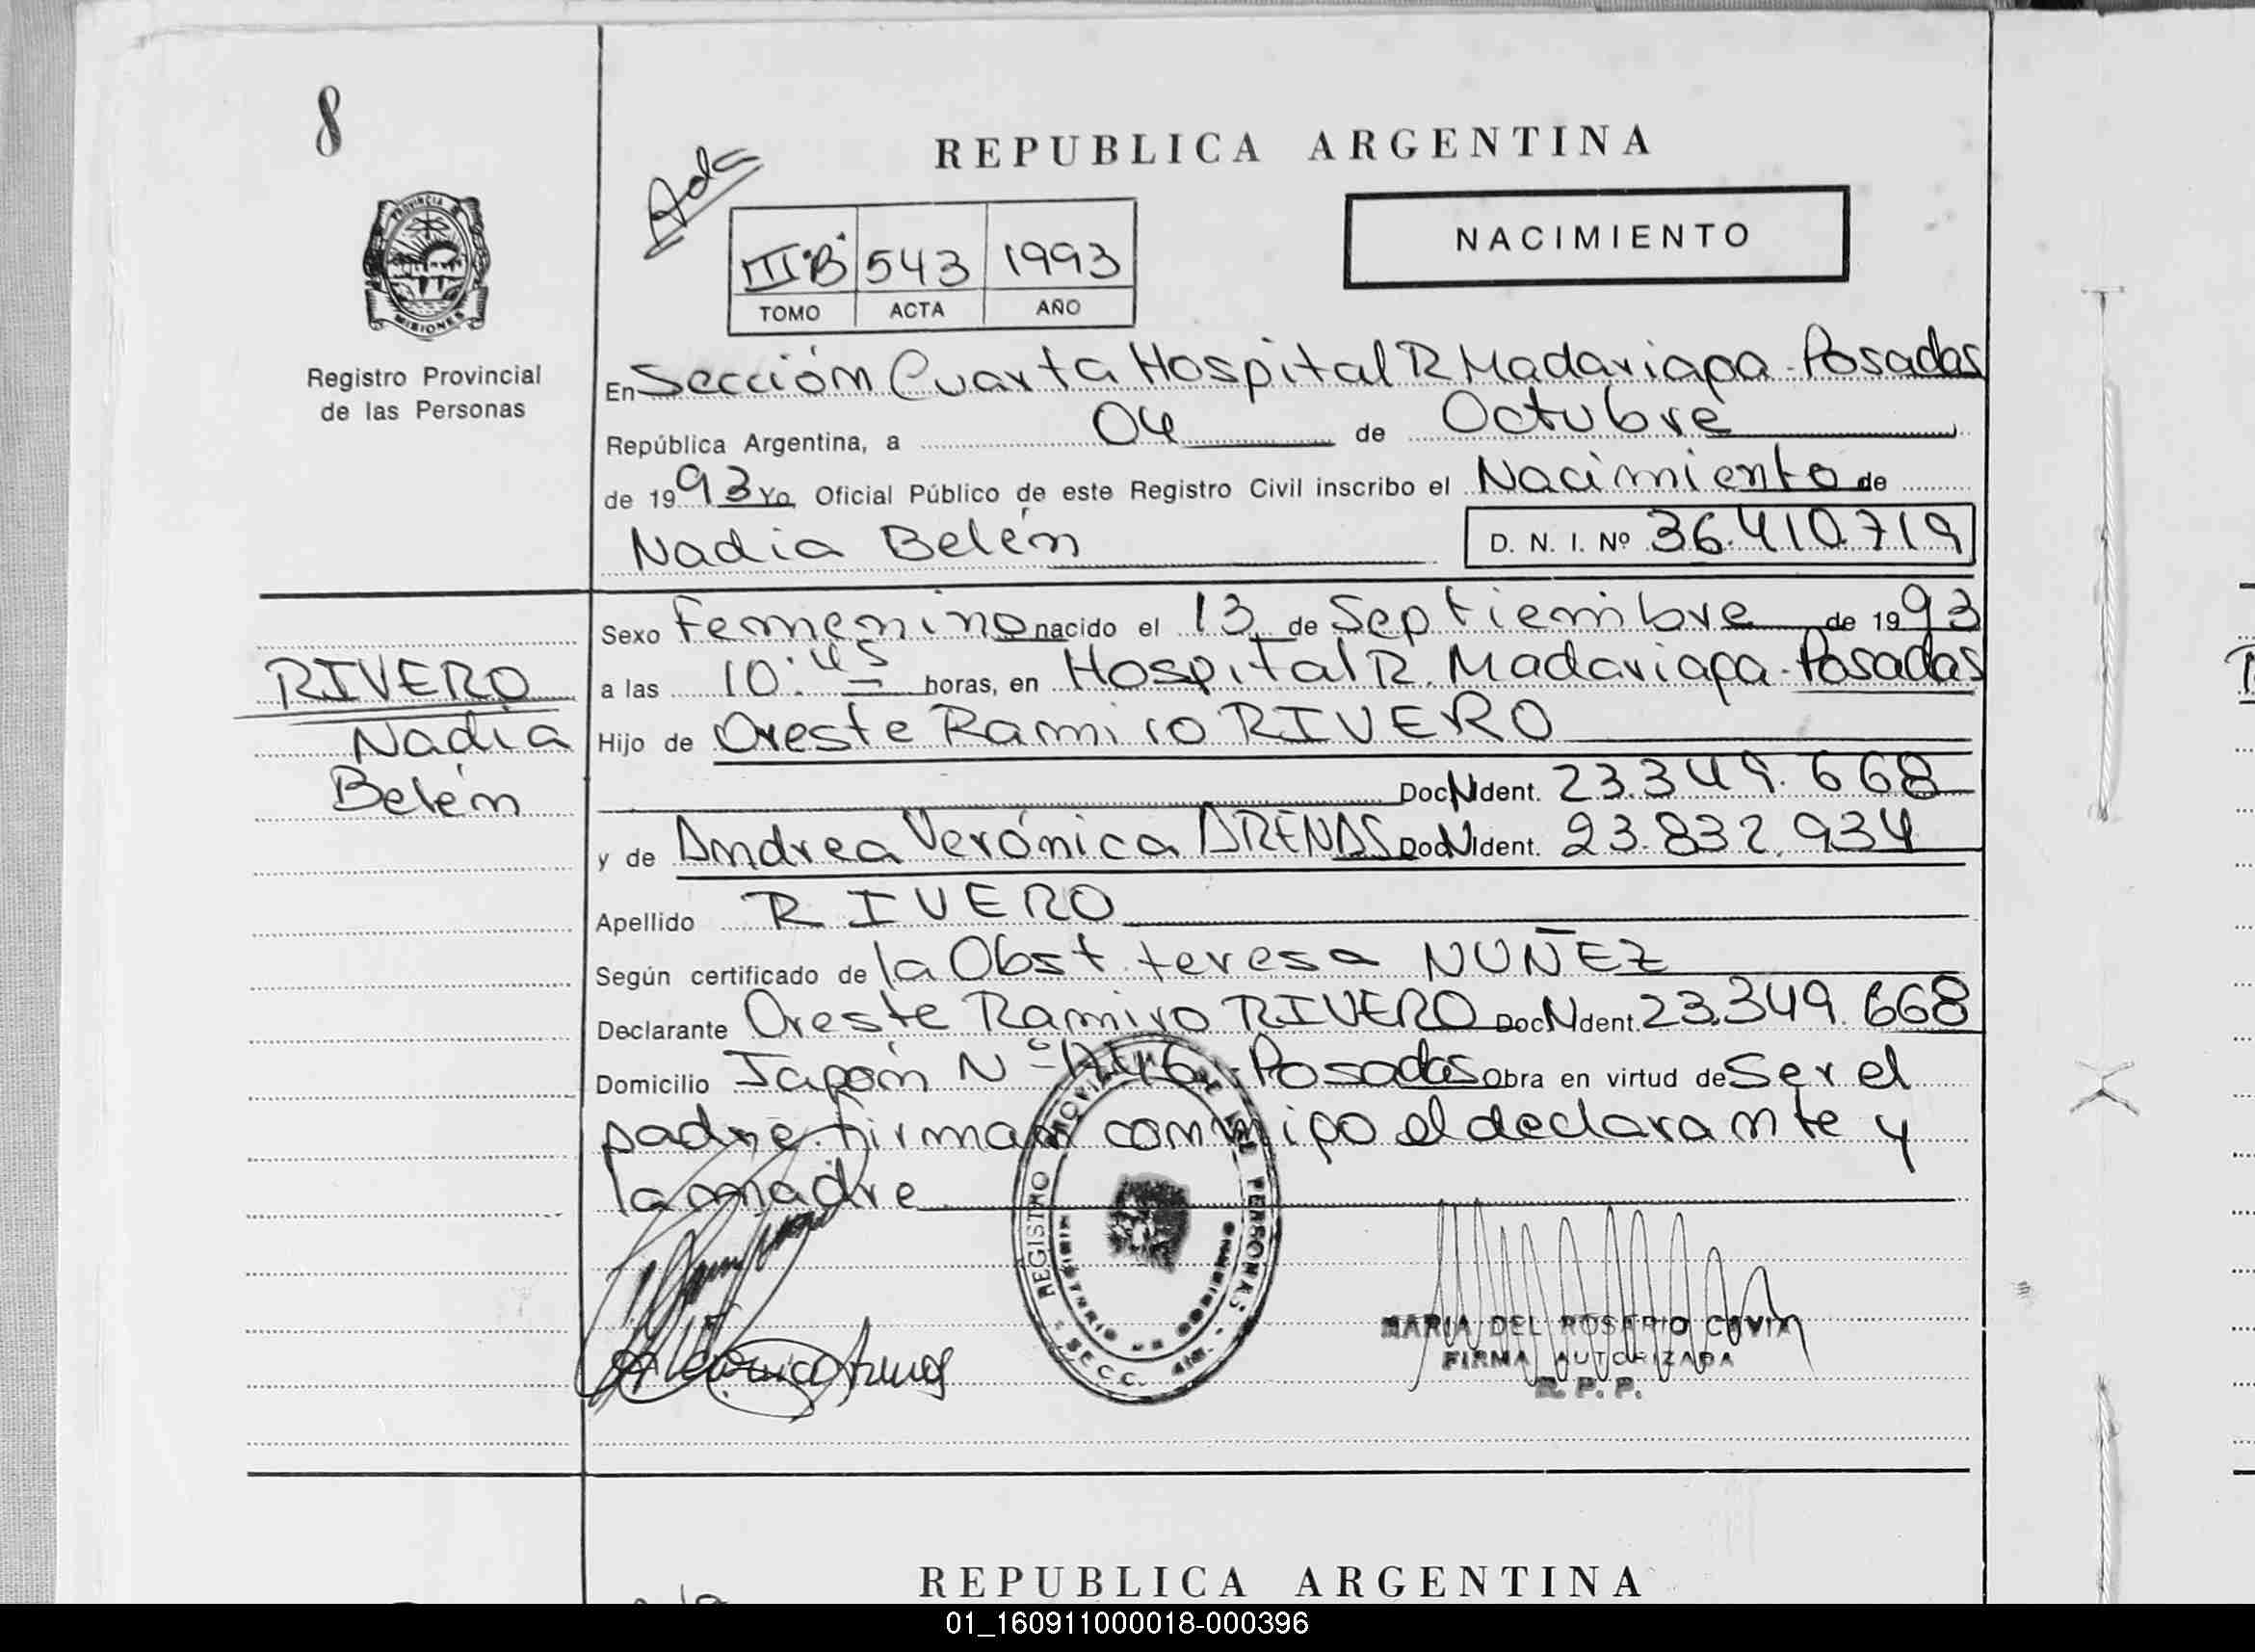 8
REPUBLICA ARGENTINA
Adc
III"B" 543 1993
TOMO ACTA AÑO
NACIMIENTO
PROVINCIA DE
MISIONES
Registro Provincial
de las Personas
En Sección Cuarta Hospital R Madariaga - Posadas
República Argentina, a 04 de Octubre
de 1993 Yo, Oficial Público de este Registro Civil inscribo el Nacimiento de
Nadia Belén D. N. I. Nº 36.410.719
RIVERO
Nadia
Belén
Sexo Femenino nacido el 13 de Septiembre de 1993
a las 10:45 horas, en Hospital R. Madariaga - Posadas
Hijo de Oreste Ramiro RIVERO
Doc N Ident. 23.349.668
y de Andrea Verónica ARENAS Doc N Ident. 23.832.934
Apellido RIVERO
Según certificado de la Obst. teresa NUÑEZ
Declarante Oreste Ramiro RIVERO Doc N Ident. 23.349.668
Domicilio Japón Nº - Posadas Obra en virtud de Ser el
padre. firman conmigo el declarante y
la madre
REGISTRO PROVINCIAL DE LAS PERSONAS
MINISTERIO DE GOBIERNO
SECC. 4ta.
A Verónica Arenas
MARIA DEL ROSARIO
FIRMA AUTORIZADA
R. P. P.
REPUBLICA ARGENTINA
01_160911000018-000396